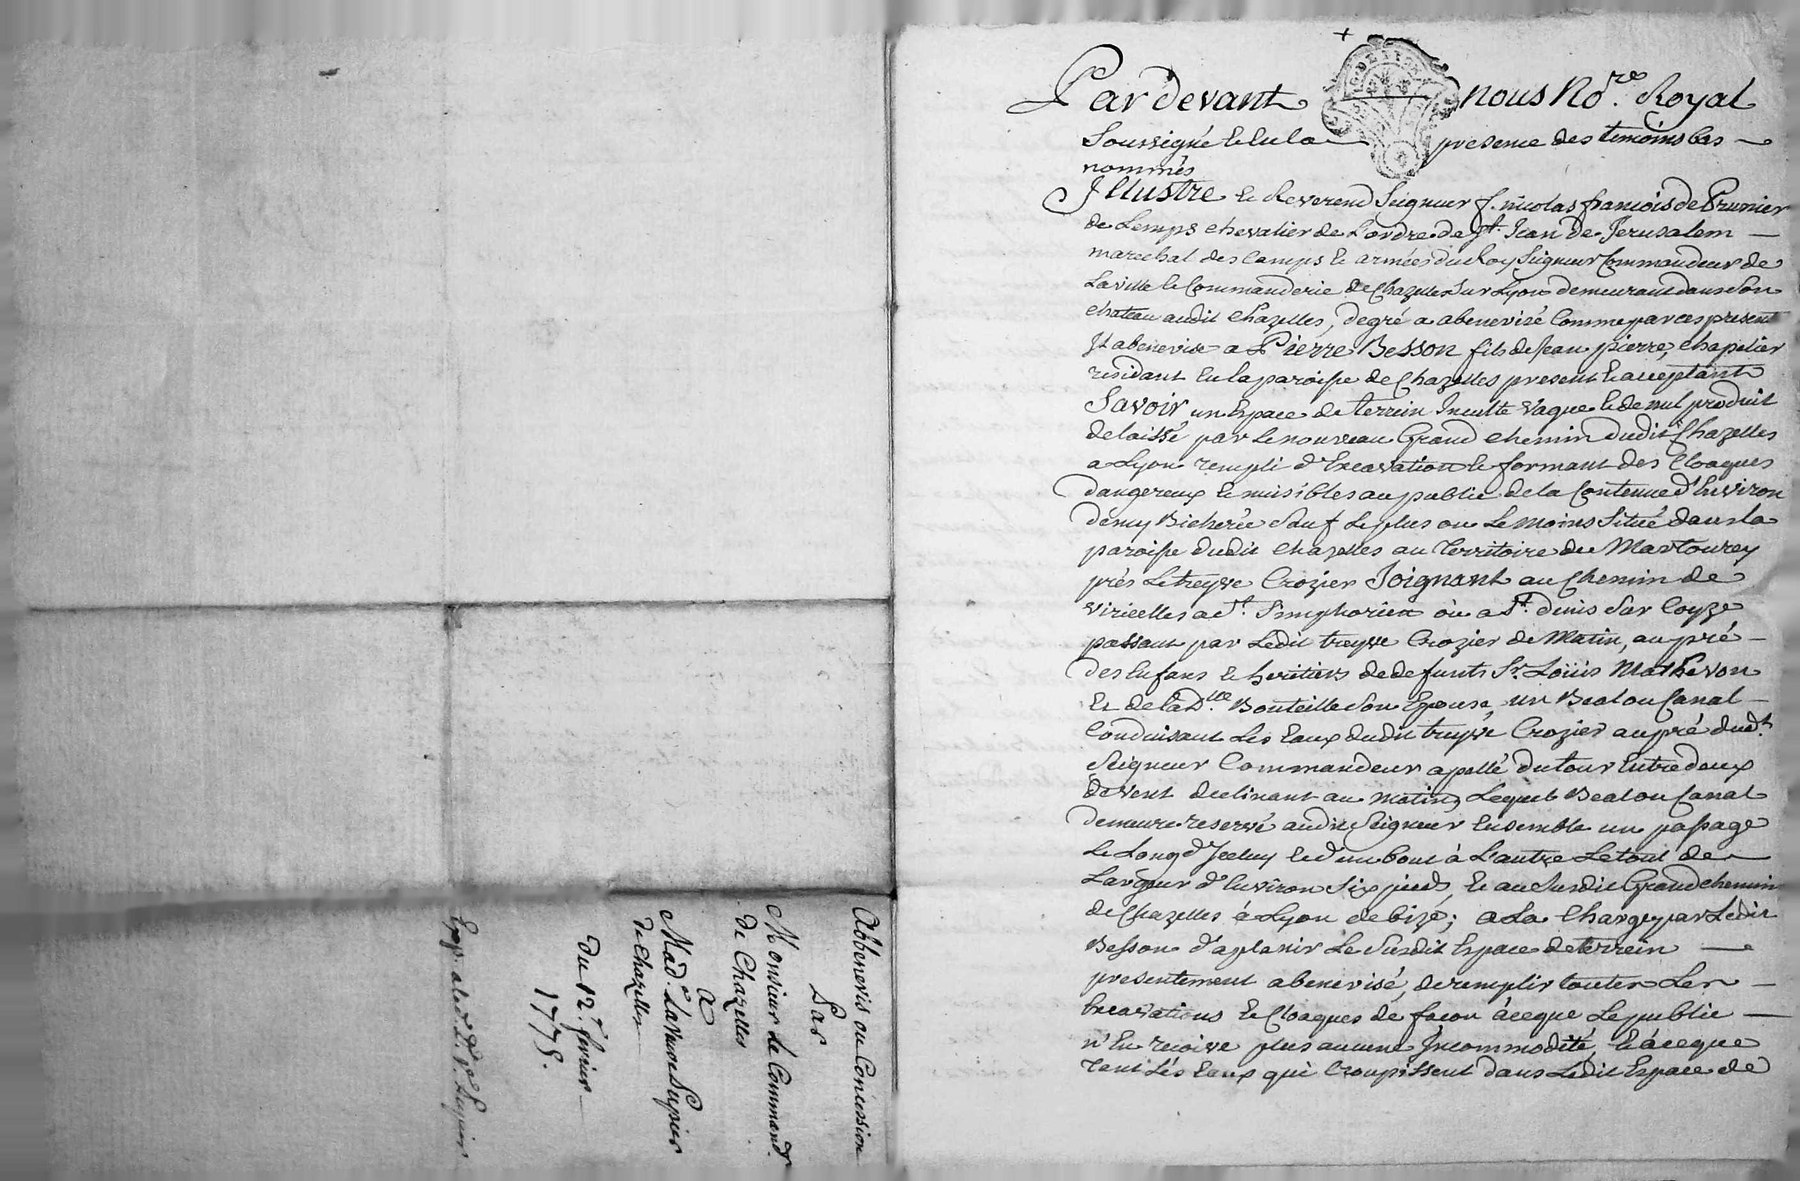 Abbenevis ou Concession
Par
Monsieur Le Command.r
de Chazelles
a
Mad.e La veuve Supier
de Chazelles
Du 12.e fevrier
1778.
Par devant nous No.re Royal
Soussigné et en la presence des temoins bas
nommés
Illustre et Reverend Seigneur f. nicolas françois de Prunier
de Lemps chevalier de L'ordre de St. Jean de Jerusalem
marechal des Camps et armées du Roy Seigneur Commandeur de
La ville et Commanderie de Chazelles sur Lyon demeurant dans son
chateau audit Chazelles, de gré a abenevisé Comme par ces presentes
Il abenevise a Pierre Besson fils de Jean pierre, chapelier
residant en la paroisse de Chazelles present et acceptant
Savoir un Espace de terrein Inculte vague et de nul produit
delaissé par le nouveau Grand chemin dudit Chazelles
a Lyon rempli d'Excavation et formant des Cloaques
dangereux et nuisibles au public de la Contenue d'Environ
demy Bicherée Sauf le plus ou Le moins Situé dans la
paroisse dudit chazelles au Territoire du Martourey
près Le treyve Crozier Joignant au chemin de
viricelles a St. Simphorien ou a St. denis sur Coyze
passant par Ledit treyve Crozier de Matin, au pré
des Enfans et heritiers de defunts Sr. Loüis Mathevon
Et de la D.lle Bouteille son Epouse, un Beal ou Canal
Conduisant Les Eaux dudit treyve Crozier au pré dud.t
Seigneur Commandeur apellé du tour Entre deux
de vent declinant au matin, Lequel Beal ou Canal
demeure reservé audit Seigneur Ensemble un passage
Le Long d'Iceluy et d'un bout à L'autre Le tout de
Largeur d'Environ Six pieds, Et au Susdit Grand chemin
de Chazelles à Lyon de bize; a La Charge par Ledit
Besson d'aplanir Le Susdit Espace de terrein
presentement abenevisé, de remplir toutes Les
Excavations Et Cloaques de façon à ce que Le public
n'En recoive plus aucune Incommodité, Et à ce que
tout Les Eaux qui Croupissent dans Ledit Espace de